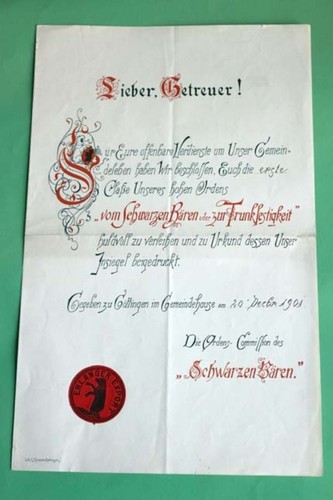 Lieber, Getreuer!
Für Eure offenbare Verdienste um Unser Gemein-
deleben haben Wir beschlossen, Euch die erste
Claße Unseres hohen Ordens
„vom Schwarzen Bären oder zur Trunkfestigkeit“
huldvoll zu verleihen und zu Urkund dessen Unser
Insiegel beigedruckt.
Gegeben zu Göttingen im Gemeindehause am 20 Decbr 1901
Die Ordens-Commission des
„Schwarzen Bären.“